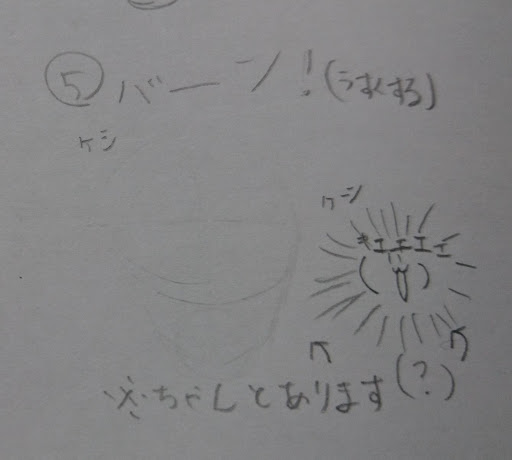 ⑤ バーン！(うすくする)
ケシ
ケシ
キエエエエ
※ちゃんとあります(?)